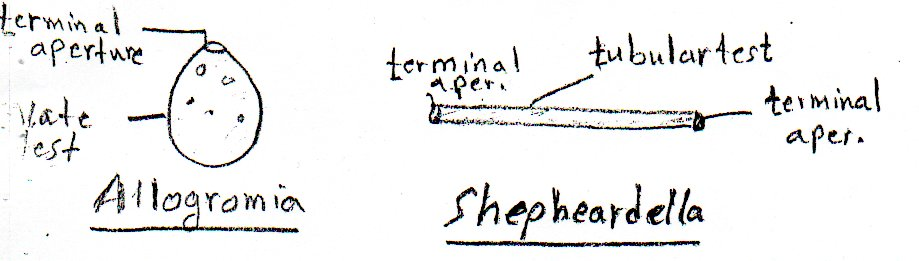 terminal
aperture
vate
test
Allogromia
terminal
aper.
tubular test
terminal
aper.
Shepheardella